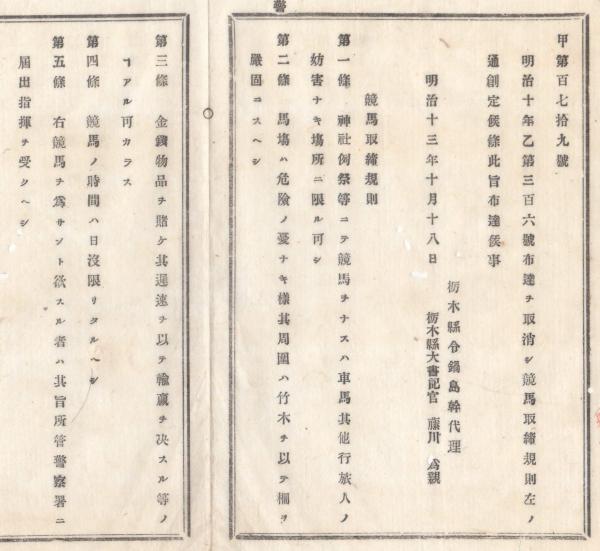 甲第百七拾九號
明治十年乙第三百六號布達ヲ取消シ競馬取締規則左ノ
通創定候條此旨布達候事
明治十三年十月十八日
栃木縣令鍋島幹代理
栃木縣大書記官 藤川為親
競馬取締規則
第一條 神社例祭等ニテ競馬ヲナスハ車馬其他行旅人ノ
妨害ナキ塲所ニ限ル可シ
第二條 馬塲ハ危險ノ憂ナキ樣其周圍ハ竹木ヲ以テ欄ヲ
嚴固ニスヘシ
第三條 金錢物品ヲ賭ケ其遲速ヲ以テ輸贏ヲ决スル等ノ
ヿアル可カラス
第四條 競馬ノ時間ハ日沒限リタルヘシ
第五條 右競馬ヲ爲サント欲スル者ハ其旨所管警察署ニ
屆出指揮ヲ受クヘシ